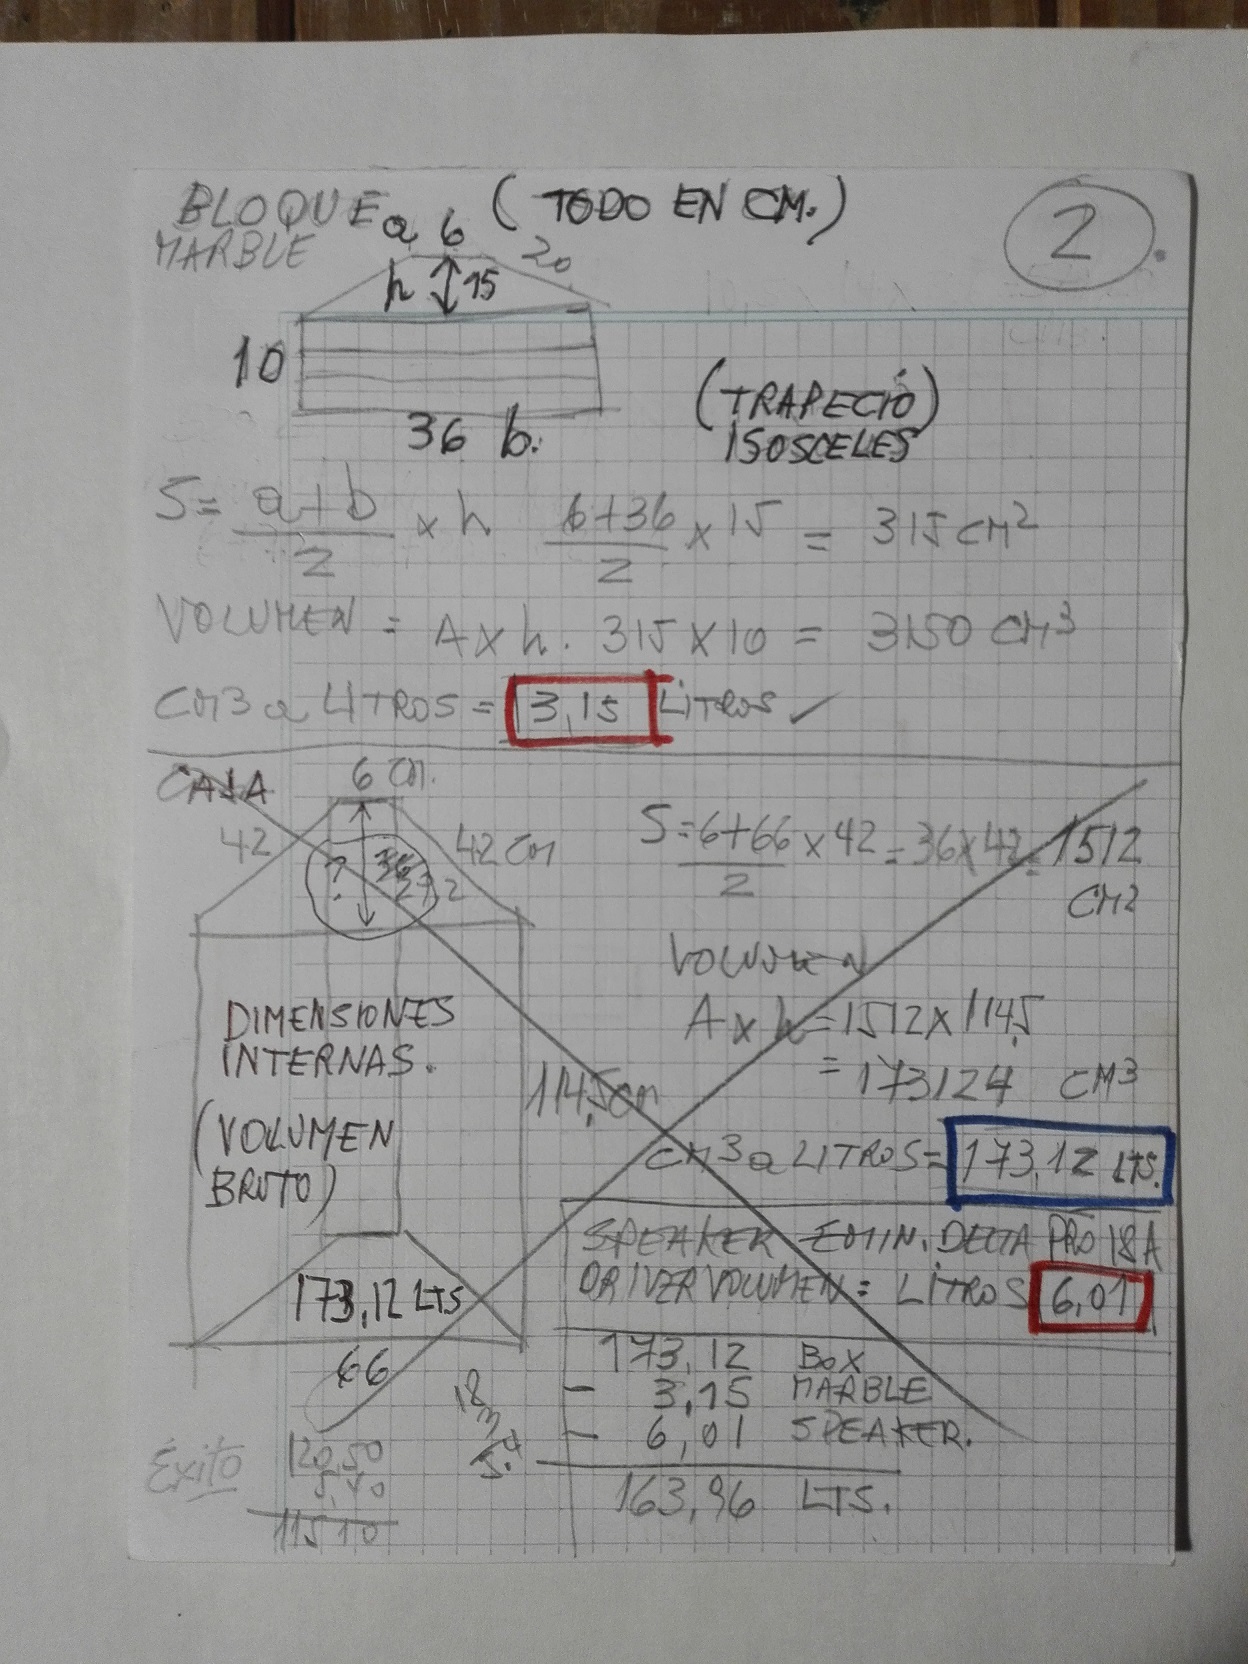 BLOQUE (TODO EN CM.)
MARBLE
2.
a 6
20
h 15
10
36 b.
(TRAPECIÓ)
ISOSCELES
S= a+b/2 x h 6+36/2 x 15 = 315 CM2
VOLUMEN = A x h. 315 x 10 = 3150 CM3
CM3 a LITROS = 3,15 LITROS ✓
CAJA
6 CM.
42
42 CM
?
S=6+66/2 x 42 = 36x42 = 1512
CM2
VOLUMEN
A x h = 1512 x 114,5
= 173124 CM3
CM3 a LITROS = 173,12 LTS.
DIMENSIONES
INTERNAS.
(VOLUMEN
BRUTO)
114,5 cm
173,12 LTS
66
SPEAKER EMIN. DELTA PRO 18A
DRIVER VOLUMEN = LITROS 6,01
173,12 BOX
- 3,15 MARBLE
- 6,01 SPEAKER.
163,96 LTS.
18
3
5.4
Éxito
120,50
5,40
115 10